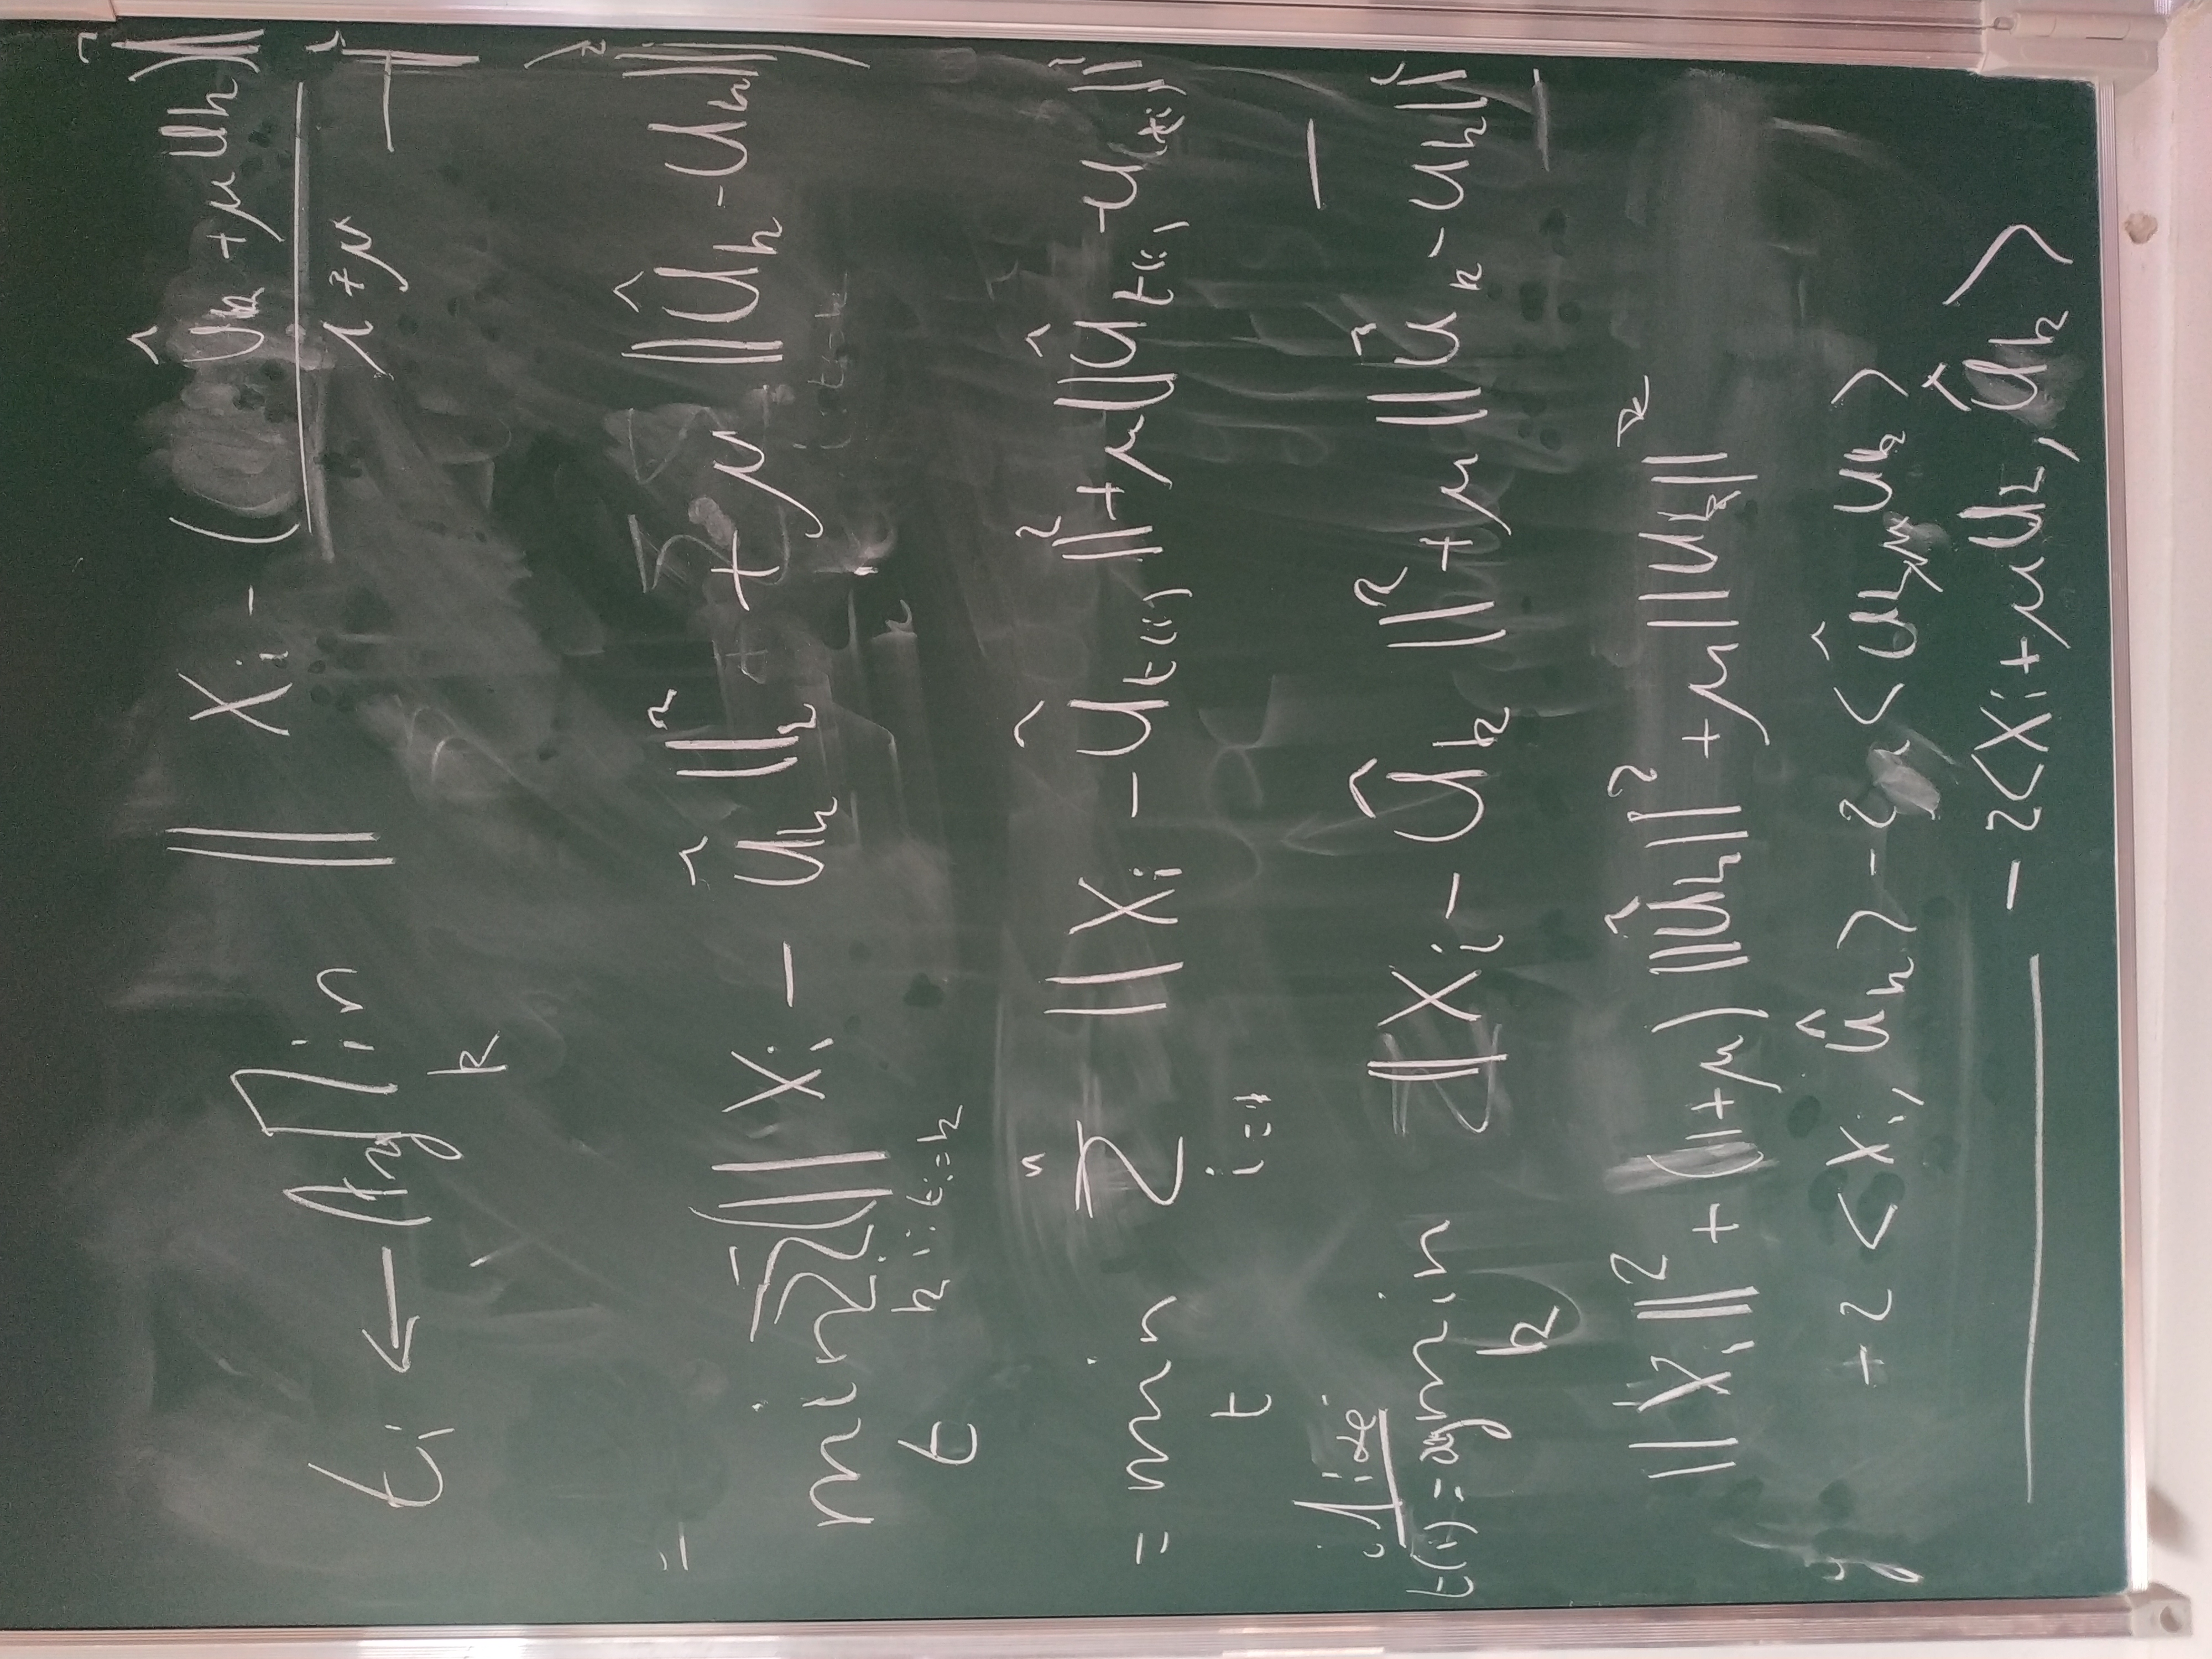 t_i ← ArgMin_k ‖ X_i - (û_k + μ u_k) / 1+μ ‖²
=
min_t Σ_k Σ_{i: t_i=k} (‖ X_i - û_k ‖² + μ ‖ û_k - u_k ‖²)
= min_t Σ_{i=1}^n ‖ X_i - û_{t(i)} ‖² + μ ‖ û_{t(i)} - u_{t(i)} ‖²
t(i) = argmin_k ‖ X_i - û_k ‖² + μ ‖ û_k - u_k ‖²
‖ X_i ‖² + (1+μ) ‖ û_k ‖² + μ ‖ u_k ‖²
-2 < X_i, û_k > -2 < û_k, μ u_k >
-2 < X_i + μ u_k, û_k >